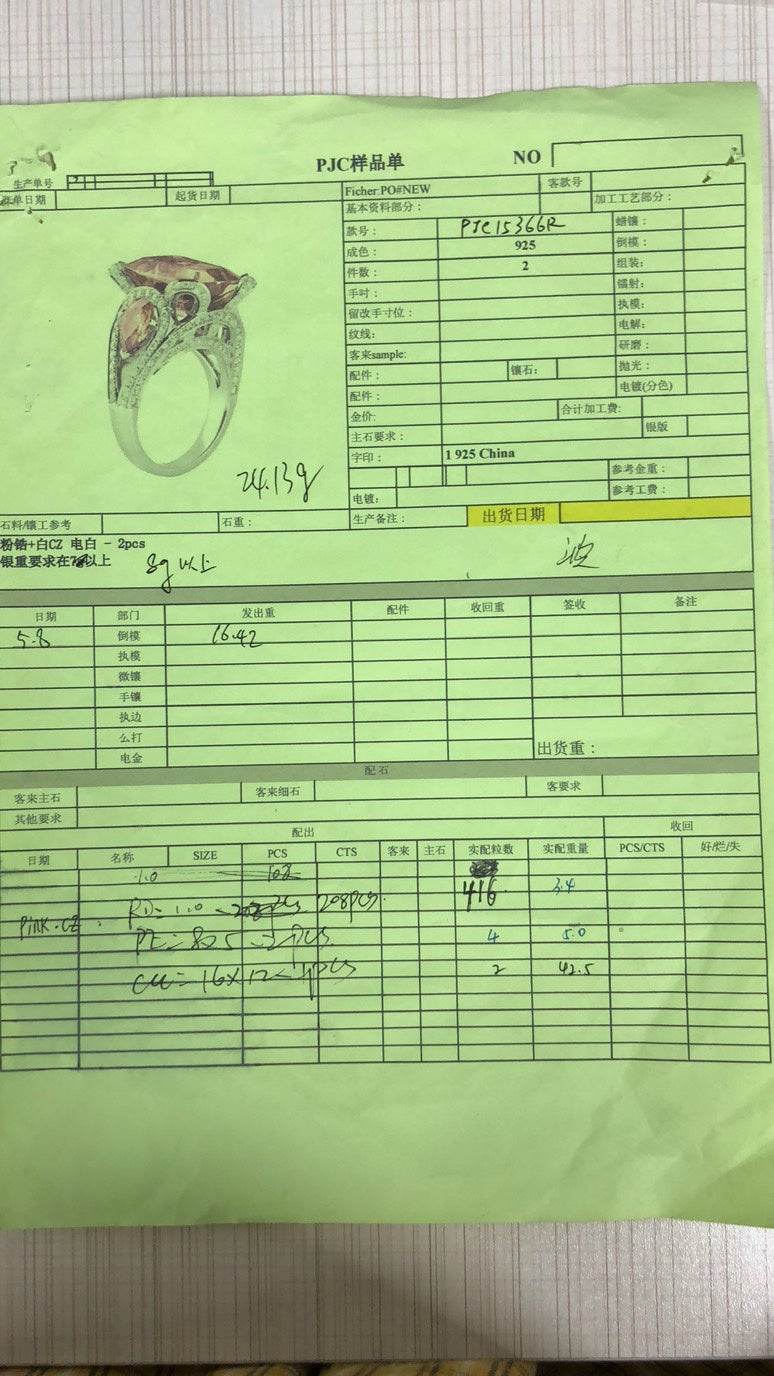 PJC样品单 NO
生产单号
单日期 起货日期 Ficher:PO#NEW 客款号
基本资料部分： 加工工艺部分：
款号： PJC15366R 蜡镶：
成色： 925 倒模：
件数： 2 组装：
手吋： 镭射：
留改手寸位： 执模：
纹线： 电解：
客来sample: 研磨：
配件： 镶石： 抛光：
配件： 电镀(分色)
金价: 合计加工费:
主石要求： 银版
字印： 1 925 China
参考金重：
电镀： 参考工费：
24.13g
石料/镶工参考 石重： 生产备注： 出货日期
粉锆+白CZ 电白 - 2pcs
银重要求在 以上 8g以上
日期 部门 发出重 配件 收回重 签收 备注
5.8 倒模 16.42
执模
微镶
手镶
执边
么打
电金 出货重：
配石
客来主石 客来细石 客要求
其他要求
配出 收回
日期 名称 SIZE PCS CTS 客来 主石 实配粒数 实配重量 PCS/CTS 好/烂/失
1.0 102
RD=1.0 208PCS 416 3.4
Pink.CZ
PE=8x5 -2PCS 4 5.0
CU=16x12 1PCS 2 42.5